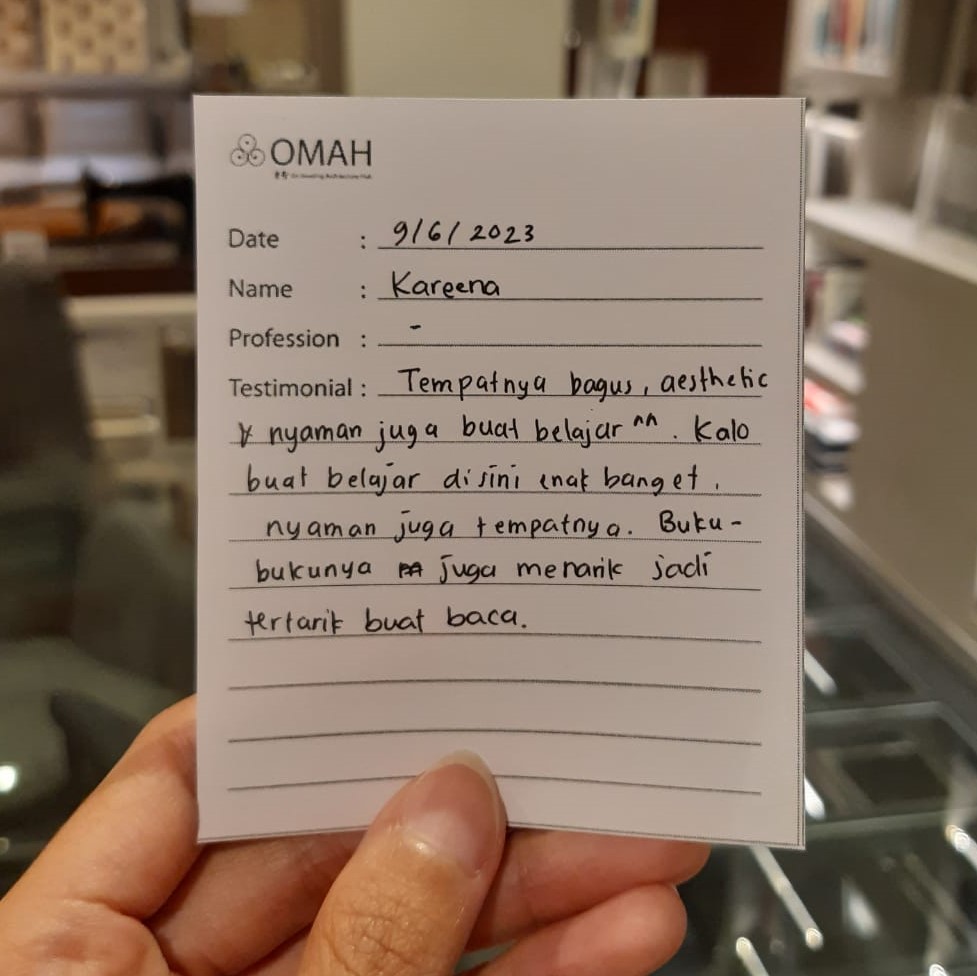 OMAH
Date : 9/6/2023
Name : Kareena
Profession : -
Testimonial : Tempatnya bagus, aesthetic
& nyaman juga buat belajar ^^. Kalo
buat belajar disini enak banget,
nyaman juga tempatnya. Buku-
bukunya juga menarik jadi
tertarik buat baca.